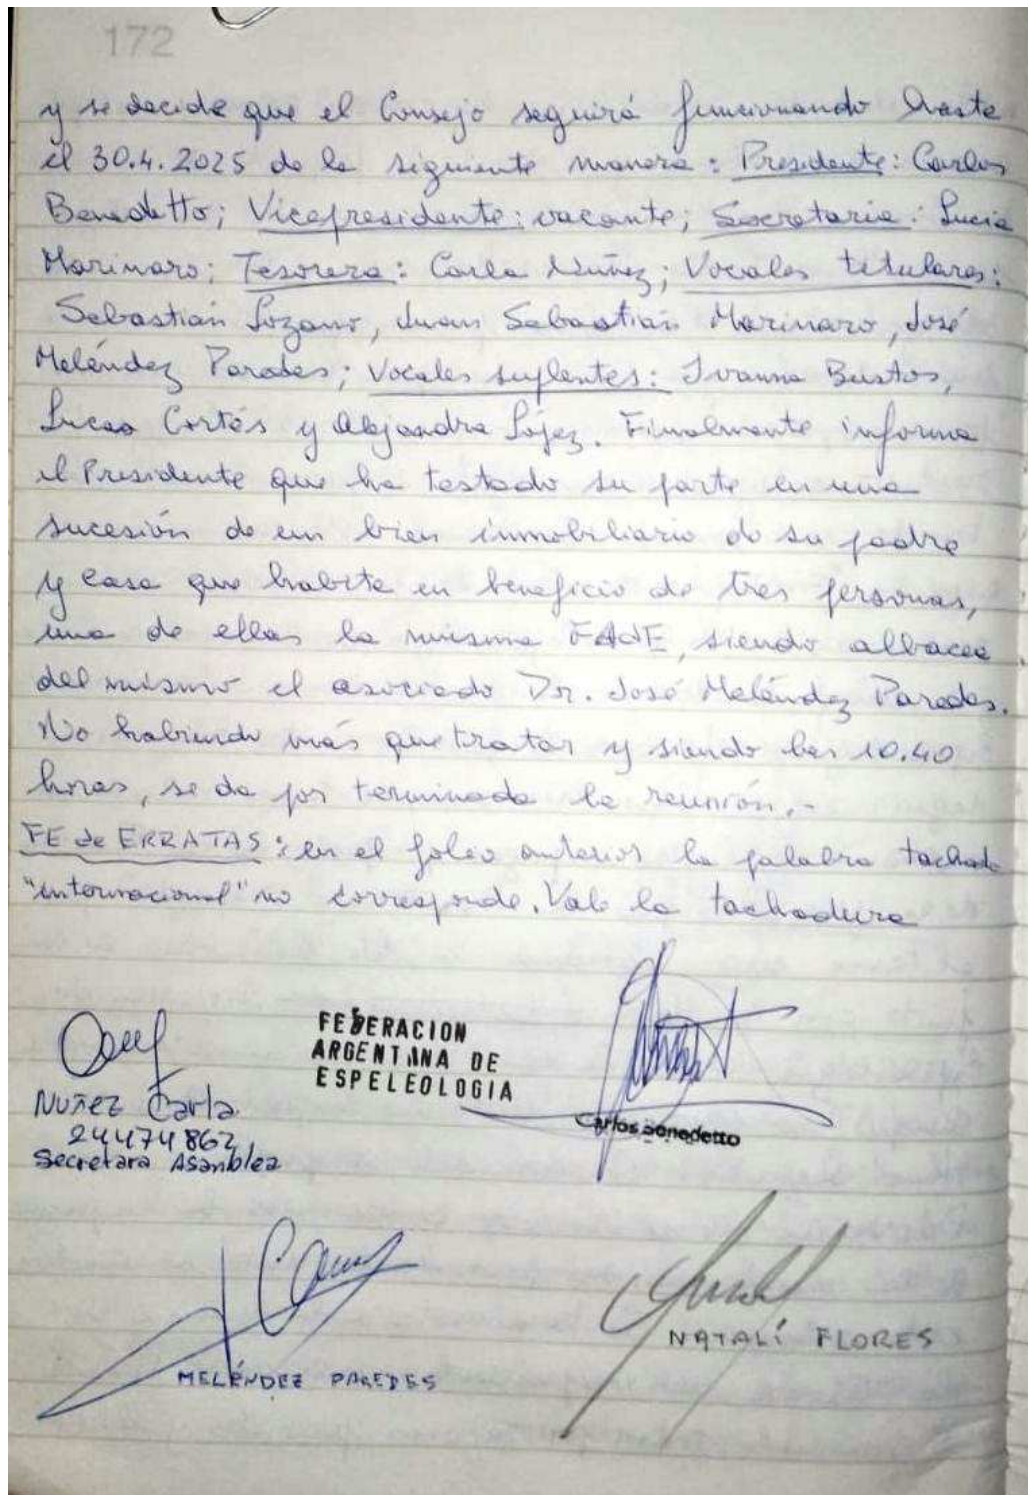 172
y se decide que el Consejo seguirá funcionando hasta
el 30.4.2025 de la siguiente manera: Presidente: Carlos
Benedetto; Vicepresidente: vacante; Secretaria: Lucía
Marinaro; Tesorera: Carla Núñez; Vocales titulares:
Sebastián Lozano, Juan Sebastián Marinaro, José
Meléndez Paredes; Vocales suplentes: Ivanna Bustos,
Lucas Cortés y Alejandra López. Finalmente informa
el Presidente que ha testado su parte en una
sucesión de un bien inmobiliario de su padre
y casa que habita en beneficio de tres personas,
una de ellas la misma FAdE, siendo albacea
del mismo el asociado Dr. José Meléndez Paredes.
No habiendo más que tratar y siendo las 10.40
horas, se da por terminada la reunión.-
FE de ERRATAS: en el folio anterior la palabra tachada
"internacional" no corresponde. Vale la tachadura
FEDERACION
ARGENTINA DE
ESPELEOLOGIA
Carlos Benedetto
Nuñez Carla
24474862
Secretara Asamblea
MELÉNDEZ PAREDES
NATALÍ FLORES